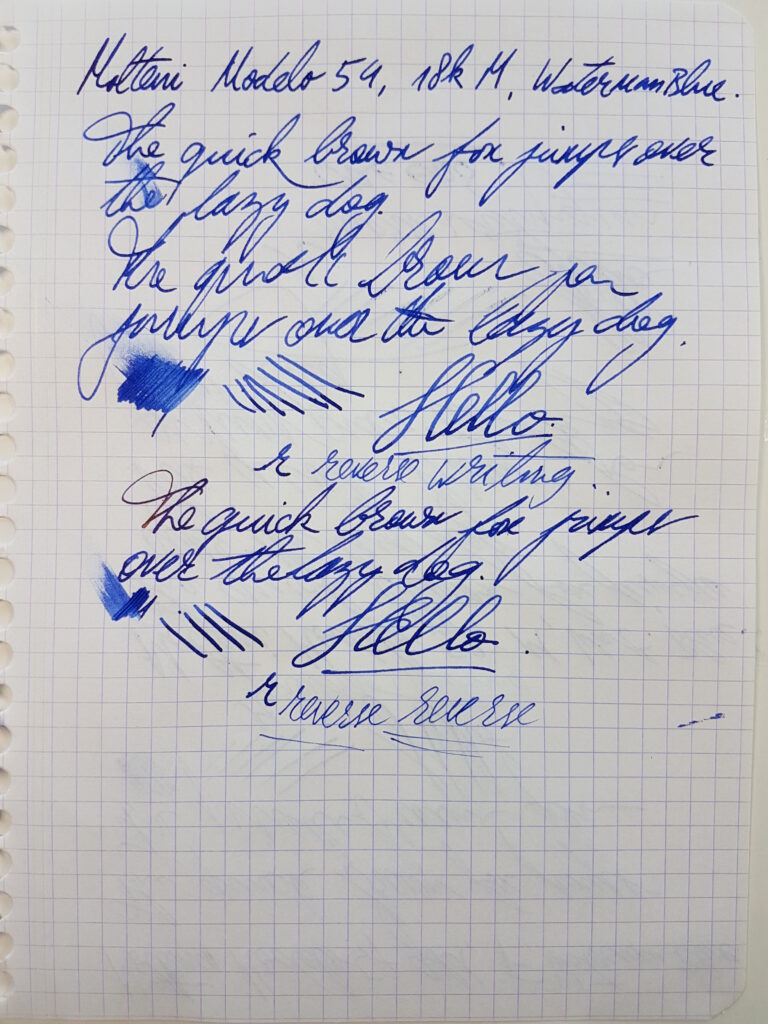 Molteni Modelo 54, 18k M, Waterman Blue.
The quick brown fox jumps over
the lazy dog.
The quick brown fox
jumps over the lazy dog.
Hello.
r reverse writing.
The quick brown fox jumps
over the lazy dog.
Hello.
r reverse reverse